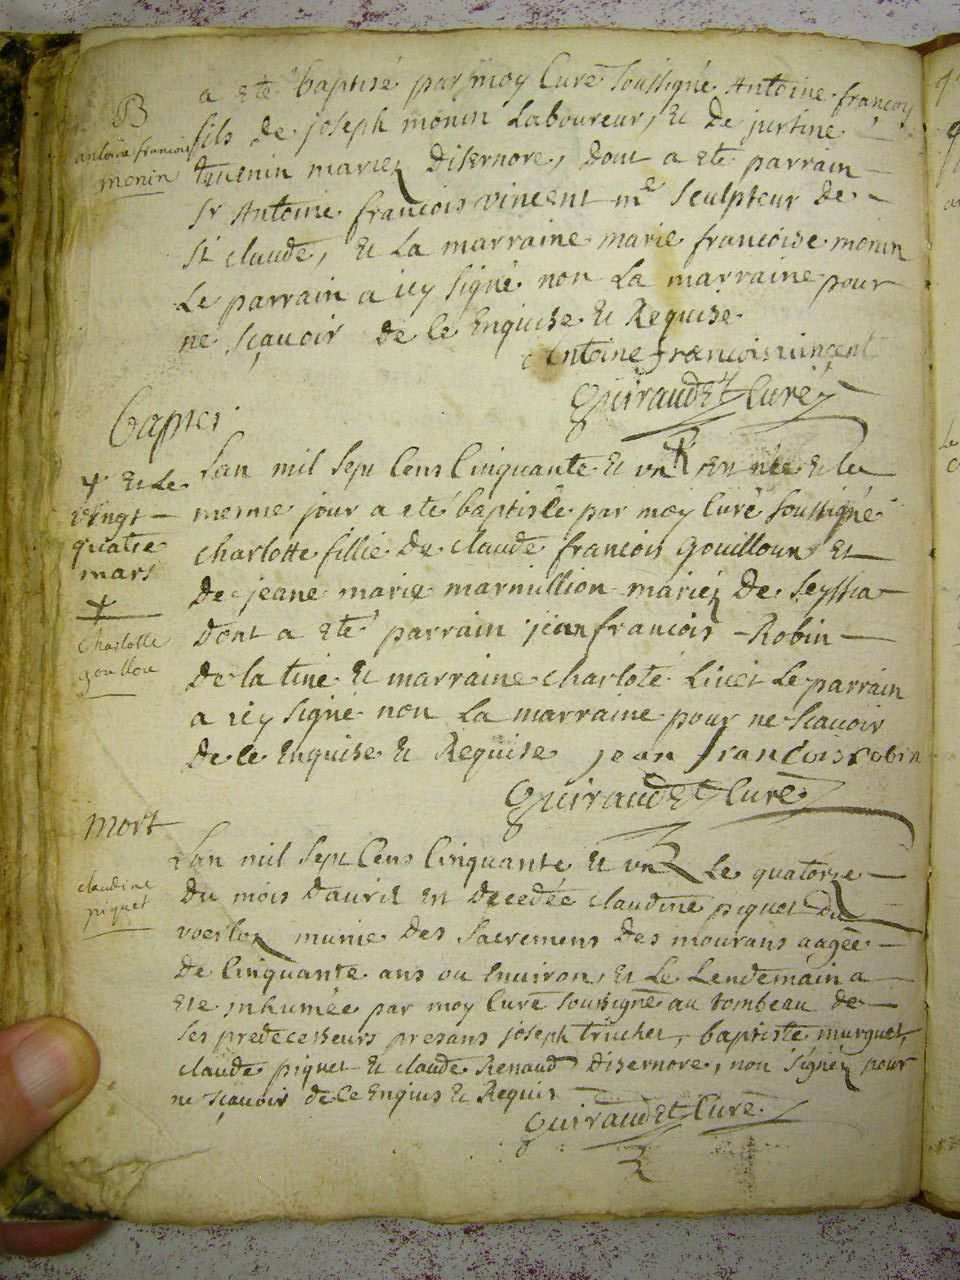 B
antoine francois
monin
a eté baptisé par moy Curé soussigné Antoine françois
fils de joseph monin Laboureur, et de justine
tuenin mariez Disernore, dont a eté parrain
Sr Antoine françois vincent me Sculpteur de
St claude, et La marraine marie françoise monin
Le parrain a icy signé non La marraine pour
ne sçavoir de ce Enquise et Requise
Antoine francois vincent
Guiraudet Curé
baptes
+ et le
vingt
quatre
mars
+
Charlotte
gouillou
Lan mil sept Cens Cinquante et un + est née et le
meme jour a eté baptisée par moy Curé soussigné
charlotte fillie de claude francois Gouilloun et
De jeane marie marmillion mariez de seyssia
Dont a eté parrain jean francois Robin
De la tine et marraine charlote Livet Le parrain
a icy signé non La marraine pour ne scavoir
De ce Enquise et Requise jean francois robin
Guiraudet Curé
mort
claudine
piquet
Lan mil sept Cens Cinquante et un Le quatorze
Du mois Davril est Decedée claudine piquet du
voerlon munie des Sacremens des mourans aagée
De Cinquante ans ou Environ, et Le Lendemain a
ete inhumée par moy Curé soussigné au tombeau de
ses predecesseurs presans joseph truchet, baptiste murguet,
claude piquet et claude Renaud Disernore, non signéz pour
ne sçavoir de ce Enquis et Requis
Guiraudet Curé